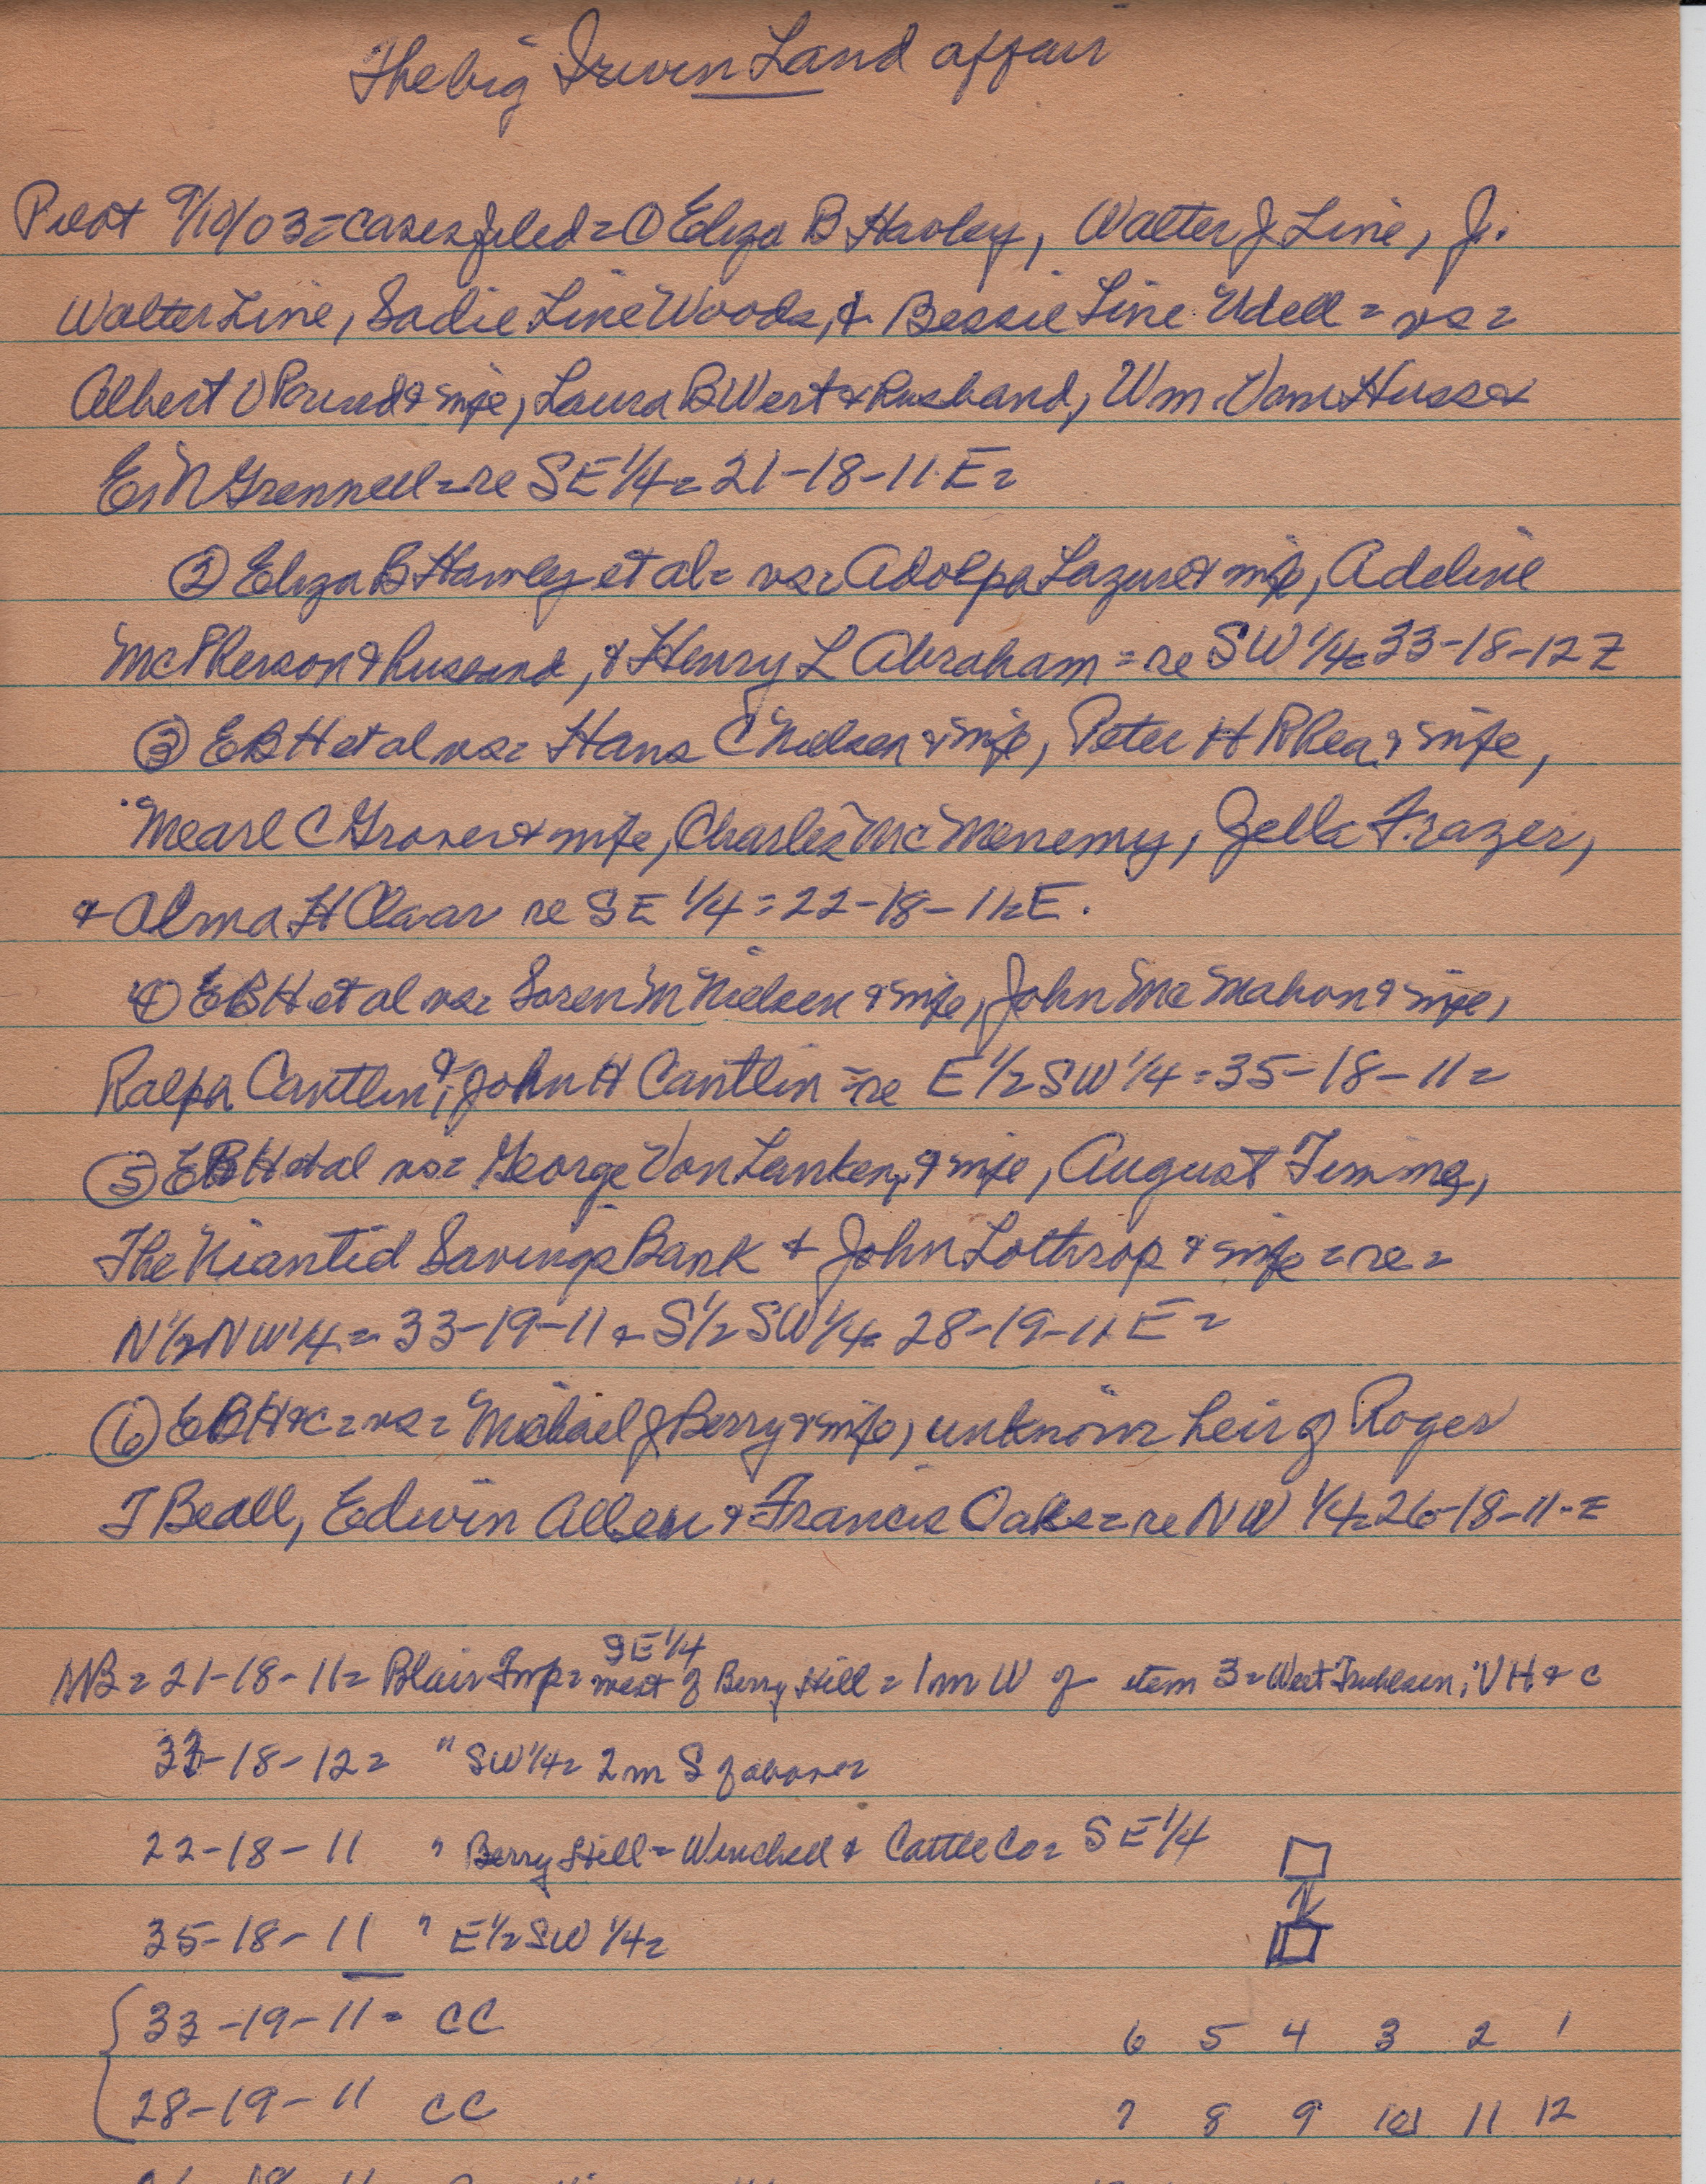 The big Irwin Land affair
Pilot 9/10/03 = cases filed = ① Eliza B Hawley, Walter J Line, Jr.
Walter Line, Sadie Line Woods, & Bessie Line Udell = vs =
Albert O Pound & wife, Laura B West & husband, Wm. Van Huss &
E N Grennell = re SE 1/4 = 21-18-11 E =
② Eliza B Hawley et al = vs = Adolph Lazure & wife, Adeline
McPherson & husband, & Henry L Abraham = re SW 1/4 = 33-18-12 E
③ EBH et al vs = Hans C Nielsen & wife, Peter H Rhea & wife,
Mearl C Grover & wife, Charles McMenemy, Zella Frazer,
& Alma H Claar re SE 1/4 = 22-18-11 = E.
④ EBH et al vs = Soren M Nielsen & wife, John McMahon & wife,
Ralph Cantlin, & John H Cantlin = re E 1/2 SW 1/4 = 35-18-11 =
⑤ EBH et al vs = George Von Lanken & wife, August Timm,
The Niantic Savings Bank & John Lothrop & wife = re =
N 1/2 NW 1/4 = 33-19-11 & S 1/2 SW 1/4 = 28-19-11 E =
⑥ EBH &c = vs = Michael J Berry & wife, unknown heirs of Roger
T Beall, Edwin Allen & Francis Oaks = re NW 1/4 = 26-18-11-E
NB = 21-18-11 = Blair Twp = SE 1/4 west of Berry Hill = 1 m W of item 3 = West Truhlsen, VH & C
33-18-12 = " SW 1/4 = 2 m S of above =
22-18-11 " Berry Hill = Winchell & Cattle Co = SE 1/4
35-18-11 " E 1/2 SW 1/4 =
33-19-11 = CC
6 5 4 3 2 1
28-19-11 CC
7 8 9 10 11 12